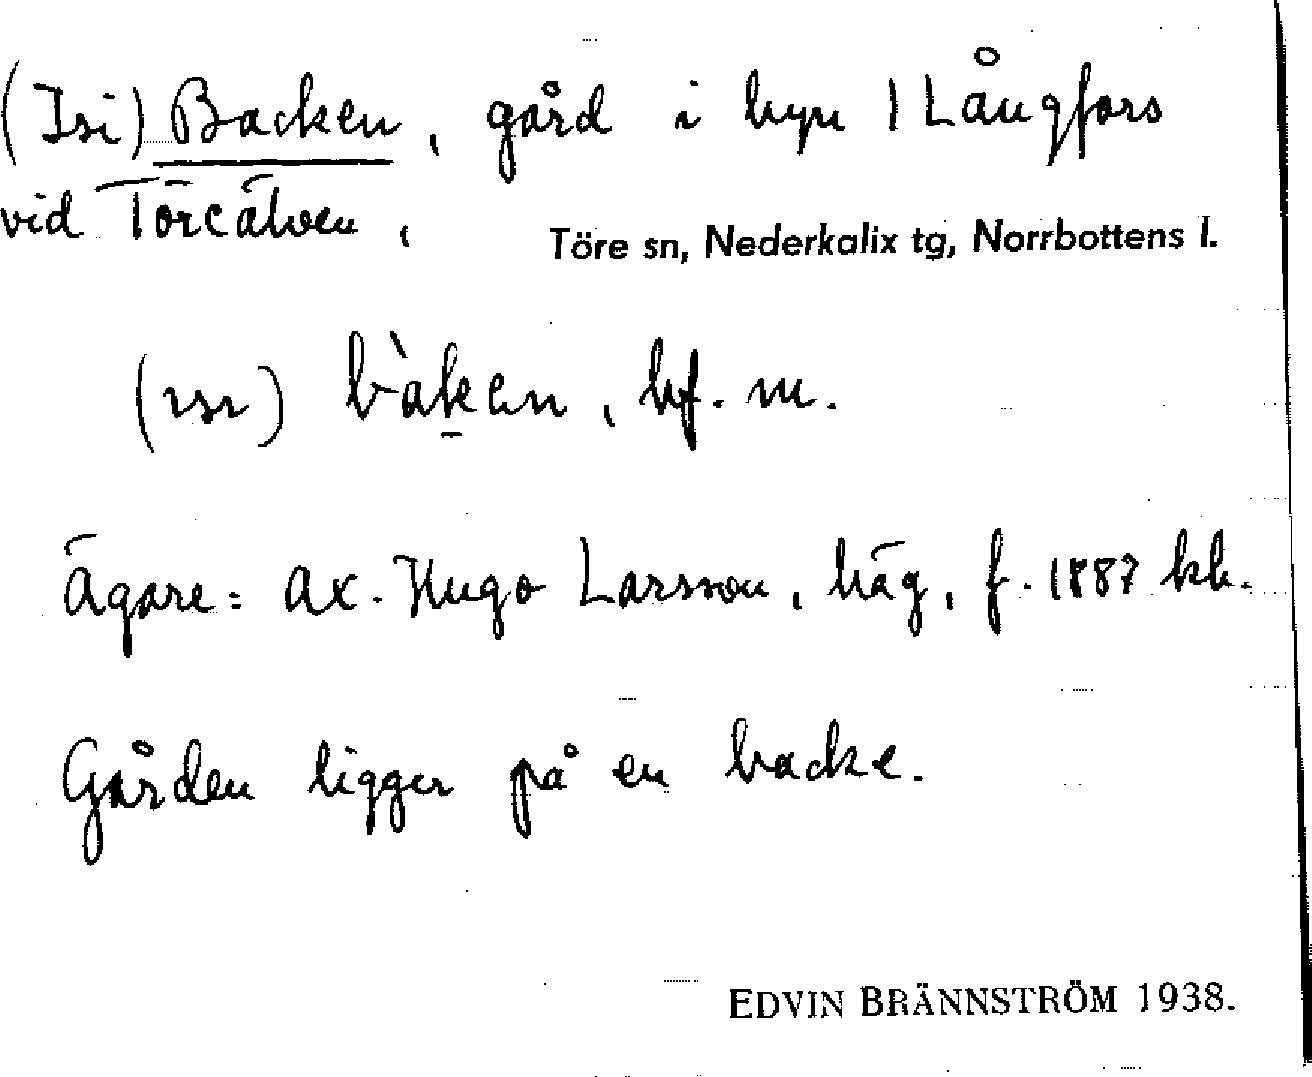 (Isi) Backen, gård i byn 1 Långfors
vid Töreälven,
Töre sn, Nederkalix tg, Norrbottens l.
bàken, bf. m.
Ägare: Ax. Hugo Larsson, häg, f. 1887 kh.
Gården ligger på en backe.
EDVIN BRÄNNSTRÖM 1938.